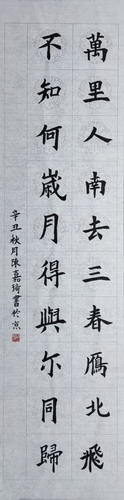 萬里人南去三春鴈北飛
不知何歲月得與尒同歸
辛丑秋月陳嘉琦書於京